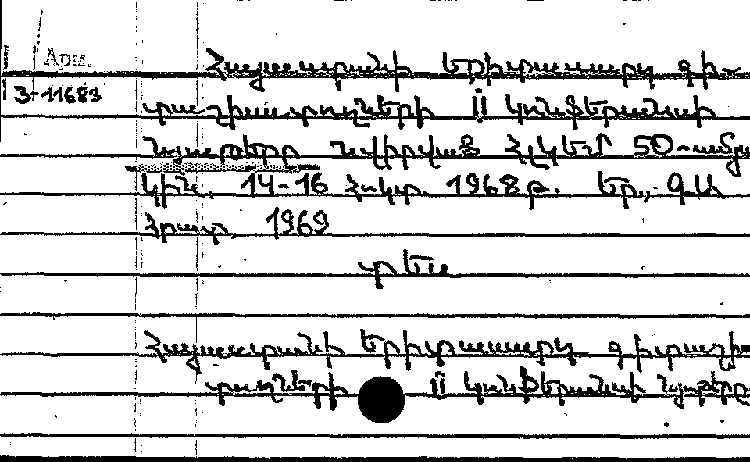 Арм.
Հայաստանի երիտասարդ գի-
3-11689
տաշխատողների II կոնֆերանսի
նյութերը նվիրված ՀԼԿԵՄ 50-ամյա
կին. 14-16 հոկտ. 1968 թ. Եր., ԳԱ
հրատ. 1969
տես
Հայաստանի երիտասարդ գիտաշխա
տողների II կոնֆերանսի նյութերը